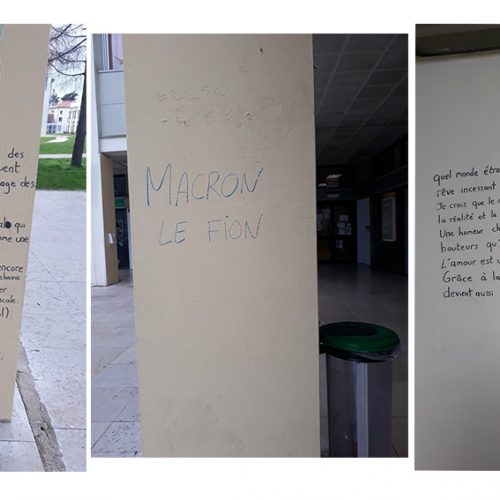 des
vent
age des
qui
me une
encore
chaine
er
scale
l)
MACRON
LE FION
quel monde étra
rêve incessant
Je crois que le r
la réalité et la
Une humeur ch
hauteurs qu'
L'amour est u
Grâce à la
devient aussi